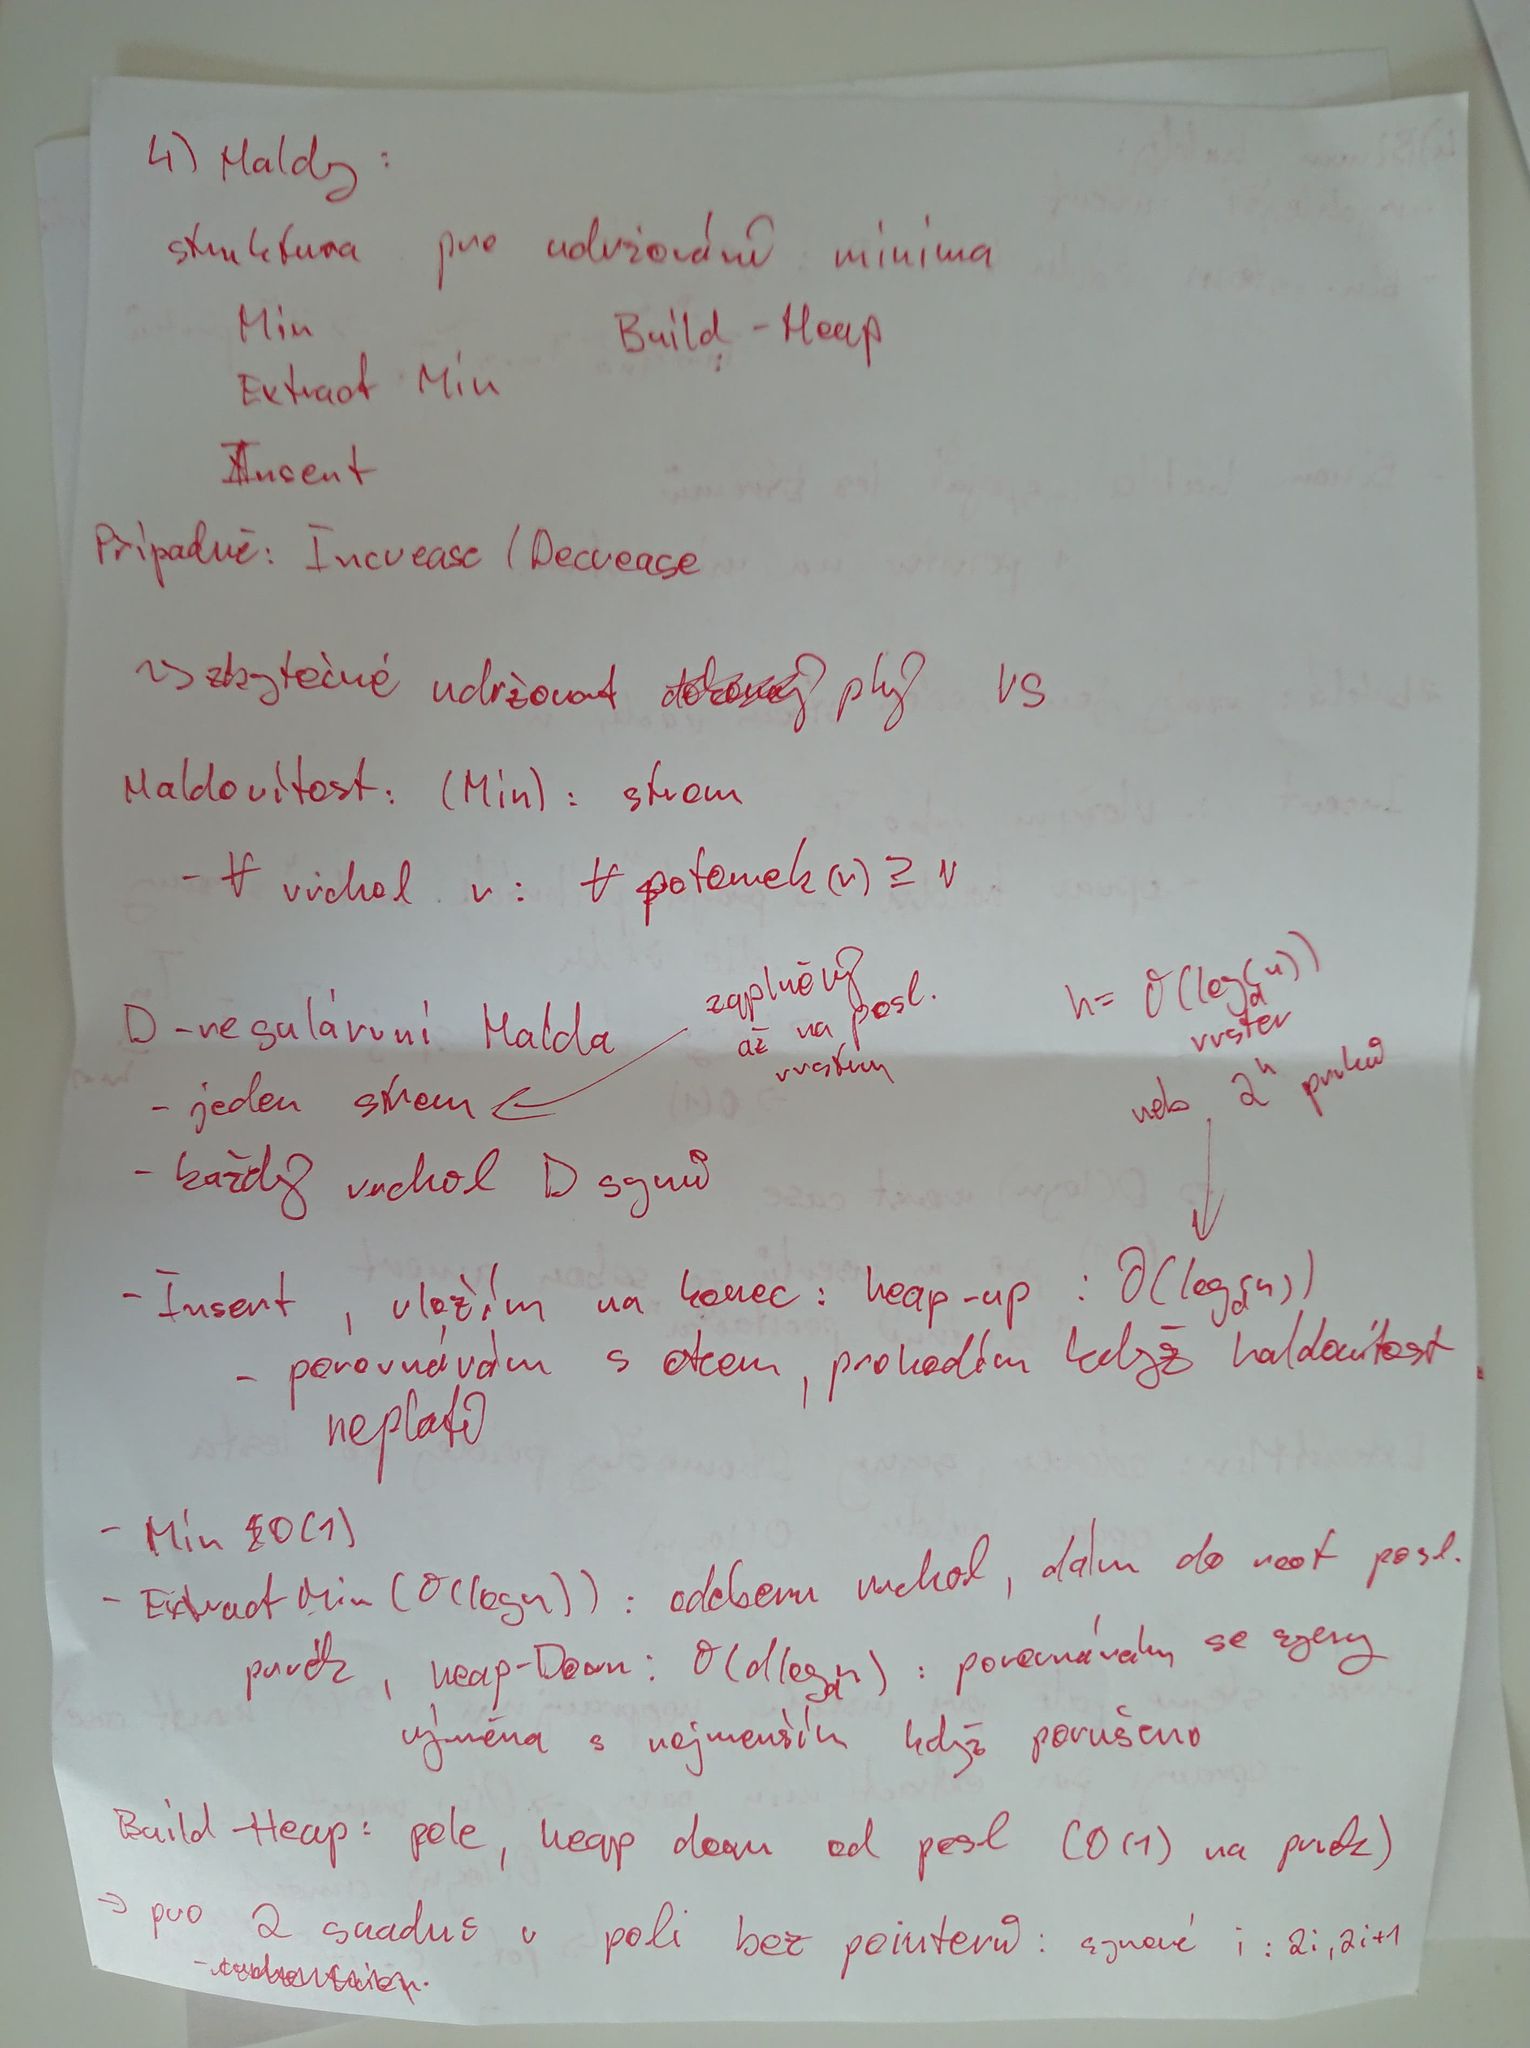 4) Haldy:
struktura pro udržování minima
Min Build-Heap
Extract Min
Insert
Případně: Increase / Decrease
↳ zbytečné udržovat plný VS
Haldovitost: (Min): strom
- ∀ vrchol v: ∀ potomek(v) ≥ v
D-regulární Halda
zaplněný
až na posl.
vrstvu
h = O(log_d(n))
vrstev
nebo 2^h prvků
- jeden strom
- každý vrchol D synů
- Insert, vložím na konec: heap-up: O(log_d(n))
- porovnávám s otcem, prohodím když haldovitost
neplatí
- Min O(1)
- Extract Min (O(log n)): odeberu vrchol, dám do root posl.
prvek, heap-Down: O(d log_d n): porovnávám se syny
výměna s nejmenším když porušeno
Build-Heap: pole, heap down od posl (O(1) na prvek)
→ pro 2 snadné v poli bez pointerů: synové i: 2i, 2i+1